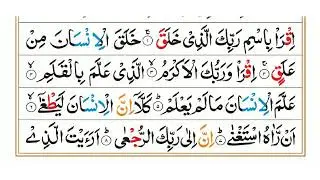 اِقْرَاْ بِاسْمِ رَبِّكَ الَّذِیْ خَلَقَ ۚ﴿۱﴾ خَلَقَ الْاِنْسَانَ مِنْ
عَلَقٍ ۚ﴿۲﴾ اِقْرَاْ وَرَبُّكَ الْاَكْرَمُ ۙ﴿۳﴾ الَّذِیْ عَلَّمَ بِالْقَلَمِ ۙ﴿۴﴾
عَلَّمَ الْاِنْسَانَ مَا لَمْ یَعْلَمْ ؕ﴿۵﴾ كَلَّاۤ اِنَّ الْاِنْسَانَ لَیَطْغٰۤی ۙ﴿۶﴾
اَنْ رَّاٰهُ اسْتَغْنٰی ؕ﴿۷﴾ اِنَّ اِلٰی رَبِّكَ الرُّجْعٰی ؕ﴿۸﴾ اَرَءَیْتَ الَّذِیْ